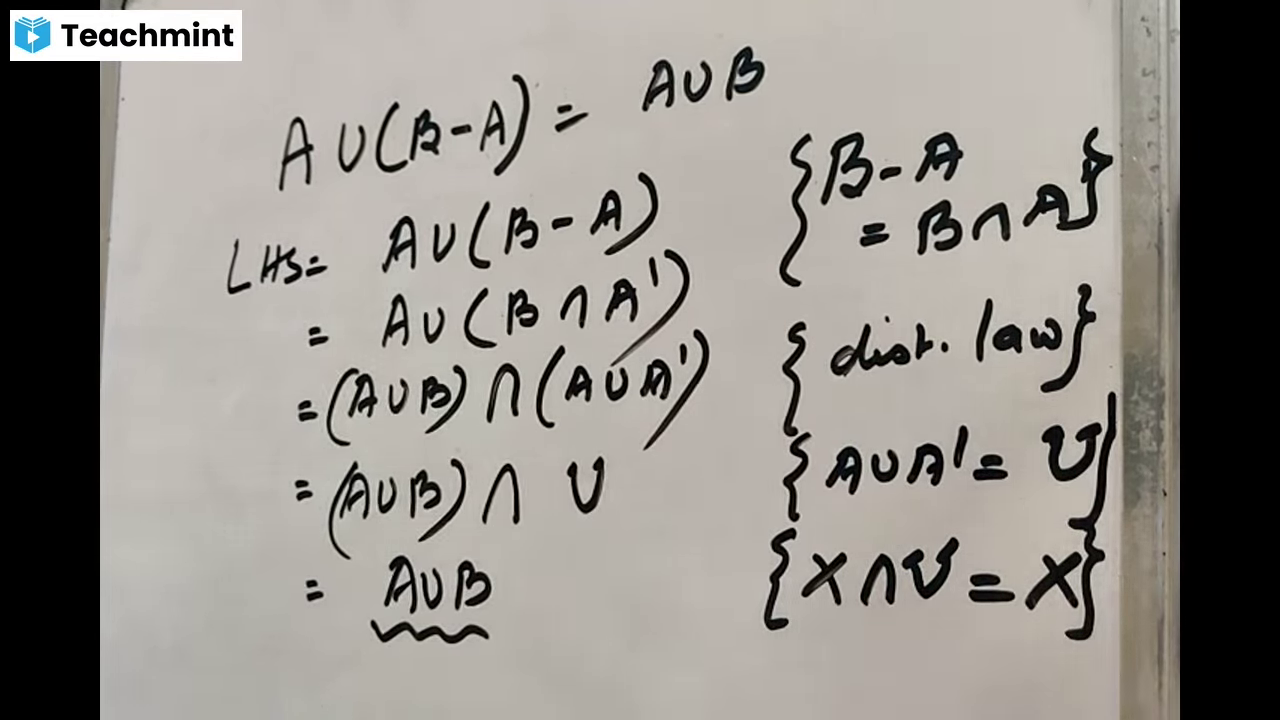 Teachmint
A∪(B-A) = A∪B
LHS= A∪(B-A)
= A∪(B∩A')
=(A∪B)∩(A∪A')
=(A∪B)∩ U
= A∪B
{B-A
= B∩A'}
{dist. law}
{A∪A'= U}
{X∩U=X}